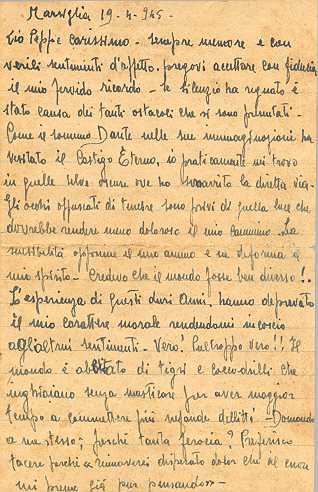 Marsiglia 19-4-945-
Zio Peppe carissimo - sempre memore e con
verili sentimenti d'affetto, pregovi accettare con fiducia
il mio fervido ricordo - se silenzio ha regnato è
stato causa dei tanti ostacoli che vi sono presentati -
Come il sommo Dante nelle sue immaginazioni ha
visitato il Castigo Eterno, io praticamente mi trovo
in quelle selve oscure ove ho smarrito la diretta via -
Gli occhi offuscati di tenebre sono privi di quella luce che
dovrebbe rendere meno doloroso il mio cammino. La
sensibilità opprime il mio animo e ne deforma il
mio spirito - Credevo che il mondo fosse ben diverso!.
L'esperienza di questi duri anni, hanno depravato
il mio carattere morale rendendomi inconscio
agl'altrui sentimenti - Vero! Purtroppo vero!! Il
mondo è abitato di tigri e coccodrilli che
inghiaiano senza masticare per aver maggior
tempo a commettere più nefande delitti! - Domando
a me stesso; perché tanta ferocia? Preferisco
tacere perché rinnoverei disperato dolor che al cuor
mi preme già pur pensando -